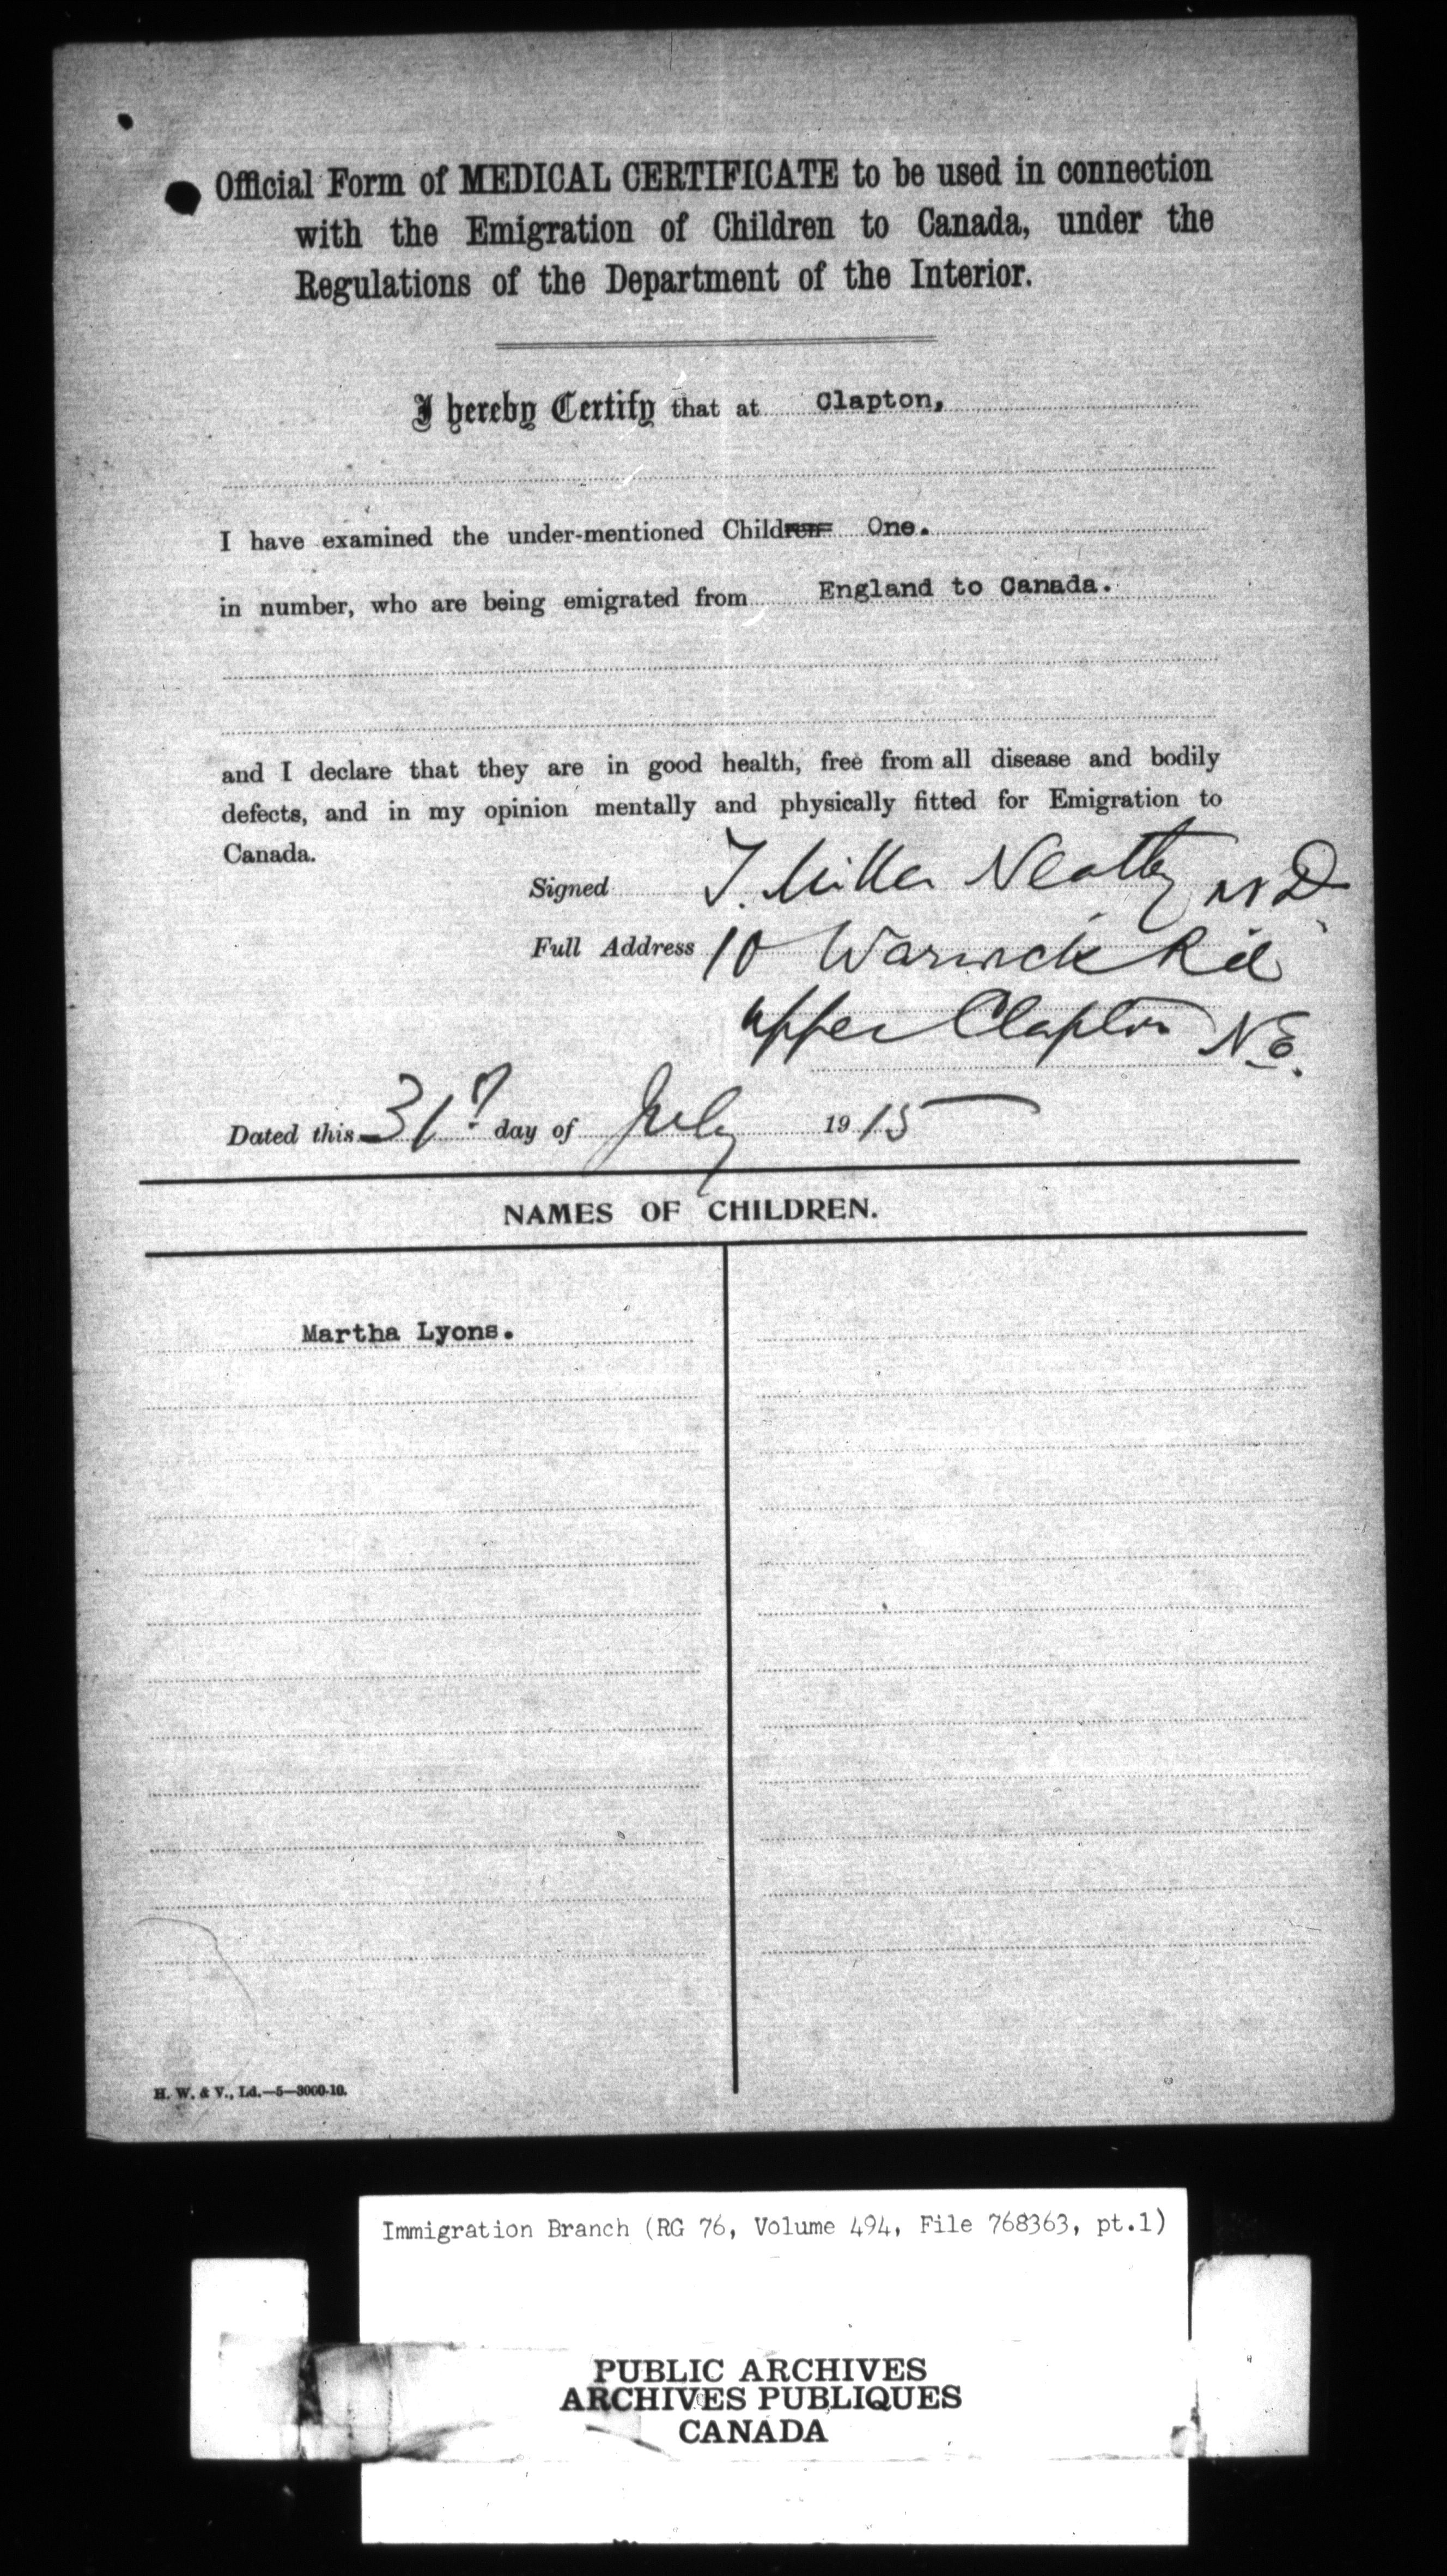 Official Form of MEDICAL CERTIFICATE to be used in connection
with the Emigration of Children to Canada, under the
Regulations of the Department of the Interior.
I hereby Certify that at Clapton,
I have examined the under-mentioned Children One.
in number, who are being emigrated from England to Canada.
and I declare that they are in good health, free from all disease and bodily
defects, and in my opinion mentally and physically fitted for Emigration to
Canada.
Signed T. Miller Neatby MD
Full Address 10 Warwick Rd
Upper Clapton N.E.
Dated this 31st day of July 1915
NAMES OF CHILDREN.
Martha Lyons.
H. W. & V., Ld.—5—3000-10.
Immigration Branch (RG 76, Volume 494, File 768363, pt.1)
PUBLIC ARCHIVES
ARCHIVES PUBLIQUES
CANADA